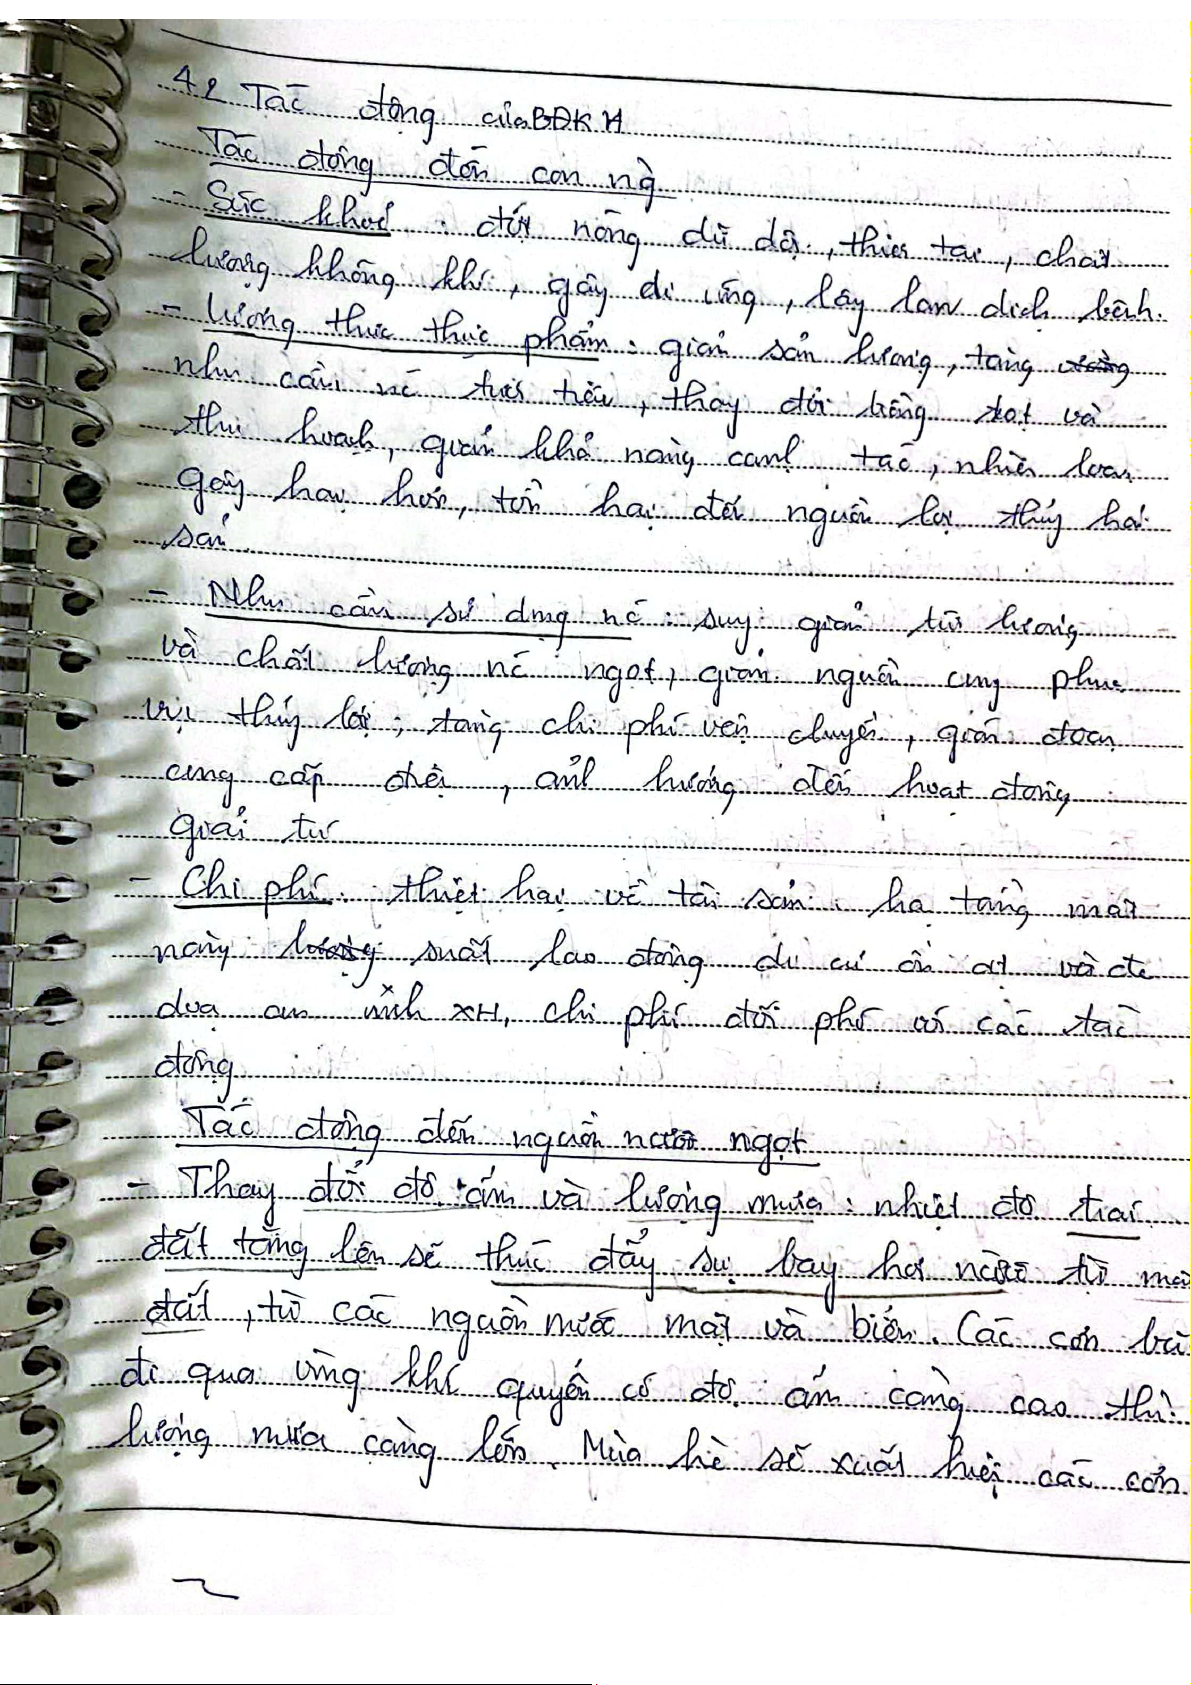 4.2 Tác động của BĐKH
Tác động đến con ng`
- Sức khoẻ : đợt nóng dữ dội, thiên tai, chất
lượng không khí, gây dị ứng, lây lan dịch bệnh.
- Lương thực thực phẩm : giảm sản lượng, tăng
nhu cầu nc tưới tiêu, thay đổi trồng trọt và
thu hoạch, giảm khả năng canh tác, nhiều loài
gây hại hơn, tổn hại đến nguồn lợi thuỷ hải
sản.
- Nhu cầu sử dụng nc : suy giảm trữ lượng
và chất lượng nc ngọt, giảm nguồn cung phục
vụ thuỷ lợi, tăng chi phí vận chuyển, gián đoạn
cung cấp điện, ảnh hưởng đến hoạt động
giải trí
- Chi phí : thiệt hại về tài sản, hạ tầng mất
năng suất lao động di cư ồ ạt và đe
doạ an ninh XH, chi phí đối phó với các tác
động
Tác động đến nguồn nước ngọt
- Thay đổi độ ẩm và lượng mưa : nhiệt độ trái
đất tăng lên sẽ thúc đẩy sự bay hơi nước từ mặ
đất, từ các nguồn nước mặt và biển. Các cơn bã
đi qua vùng khí quyển có độ ẩm càng cao thì
lượng mưa càng lớn. Mùa hè sẽ xuất hiện các cơn